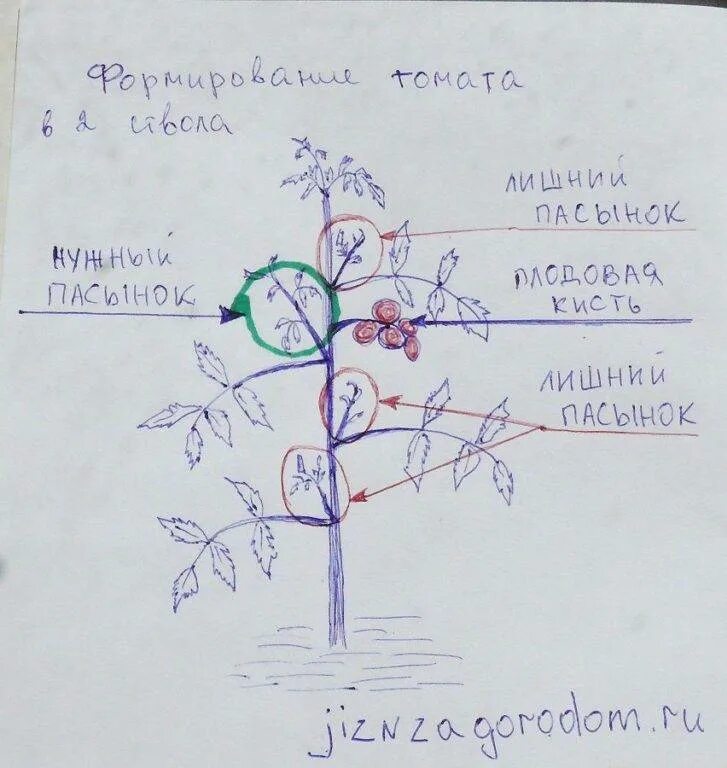 Формирование томата
в 2 ствола
ЛИШНИЙ
ПАСЫНОК
НУЖНЫЙ
ПАСЫНОК
ПЛОДОВАЯ
КИСТЬ
ЛИШНИЙ
ПАСЫНОК
jiznzagorodom.ru